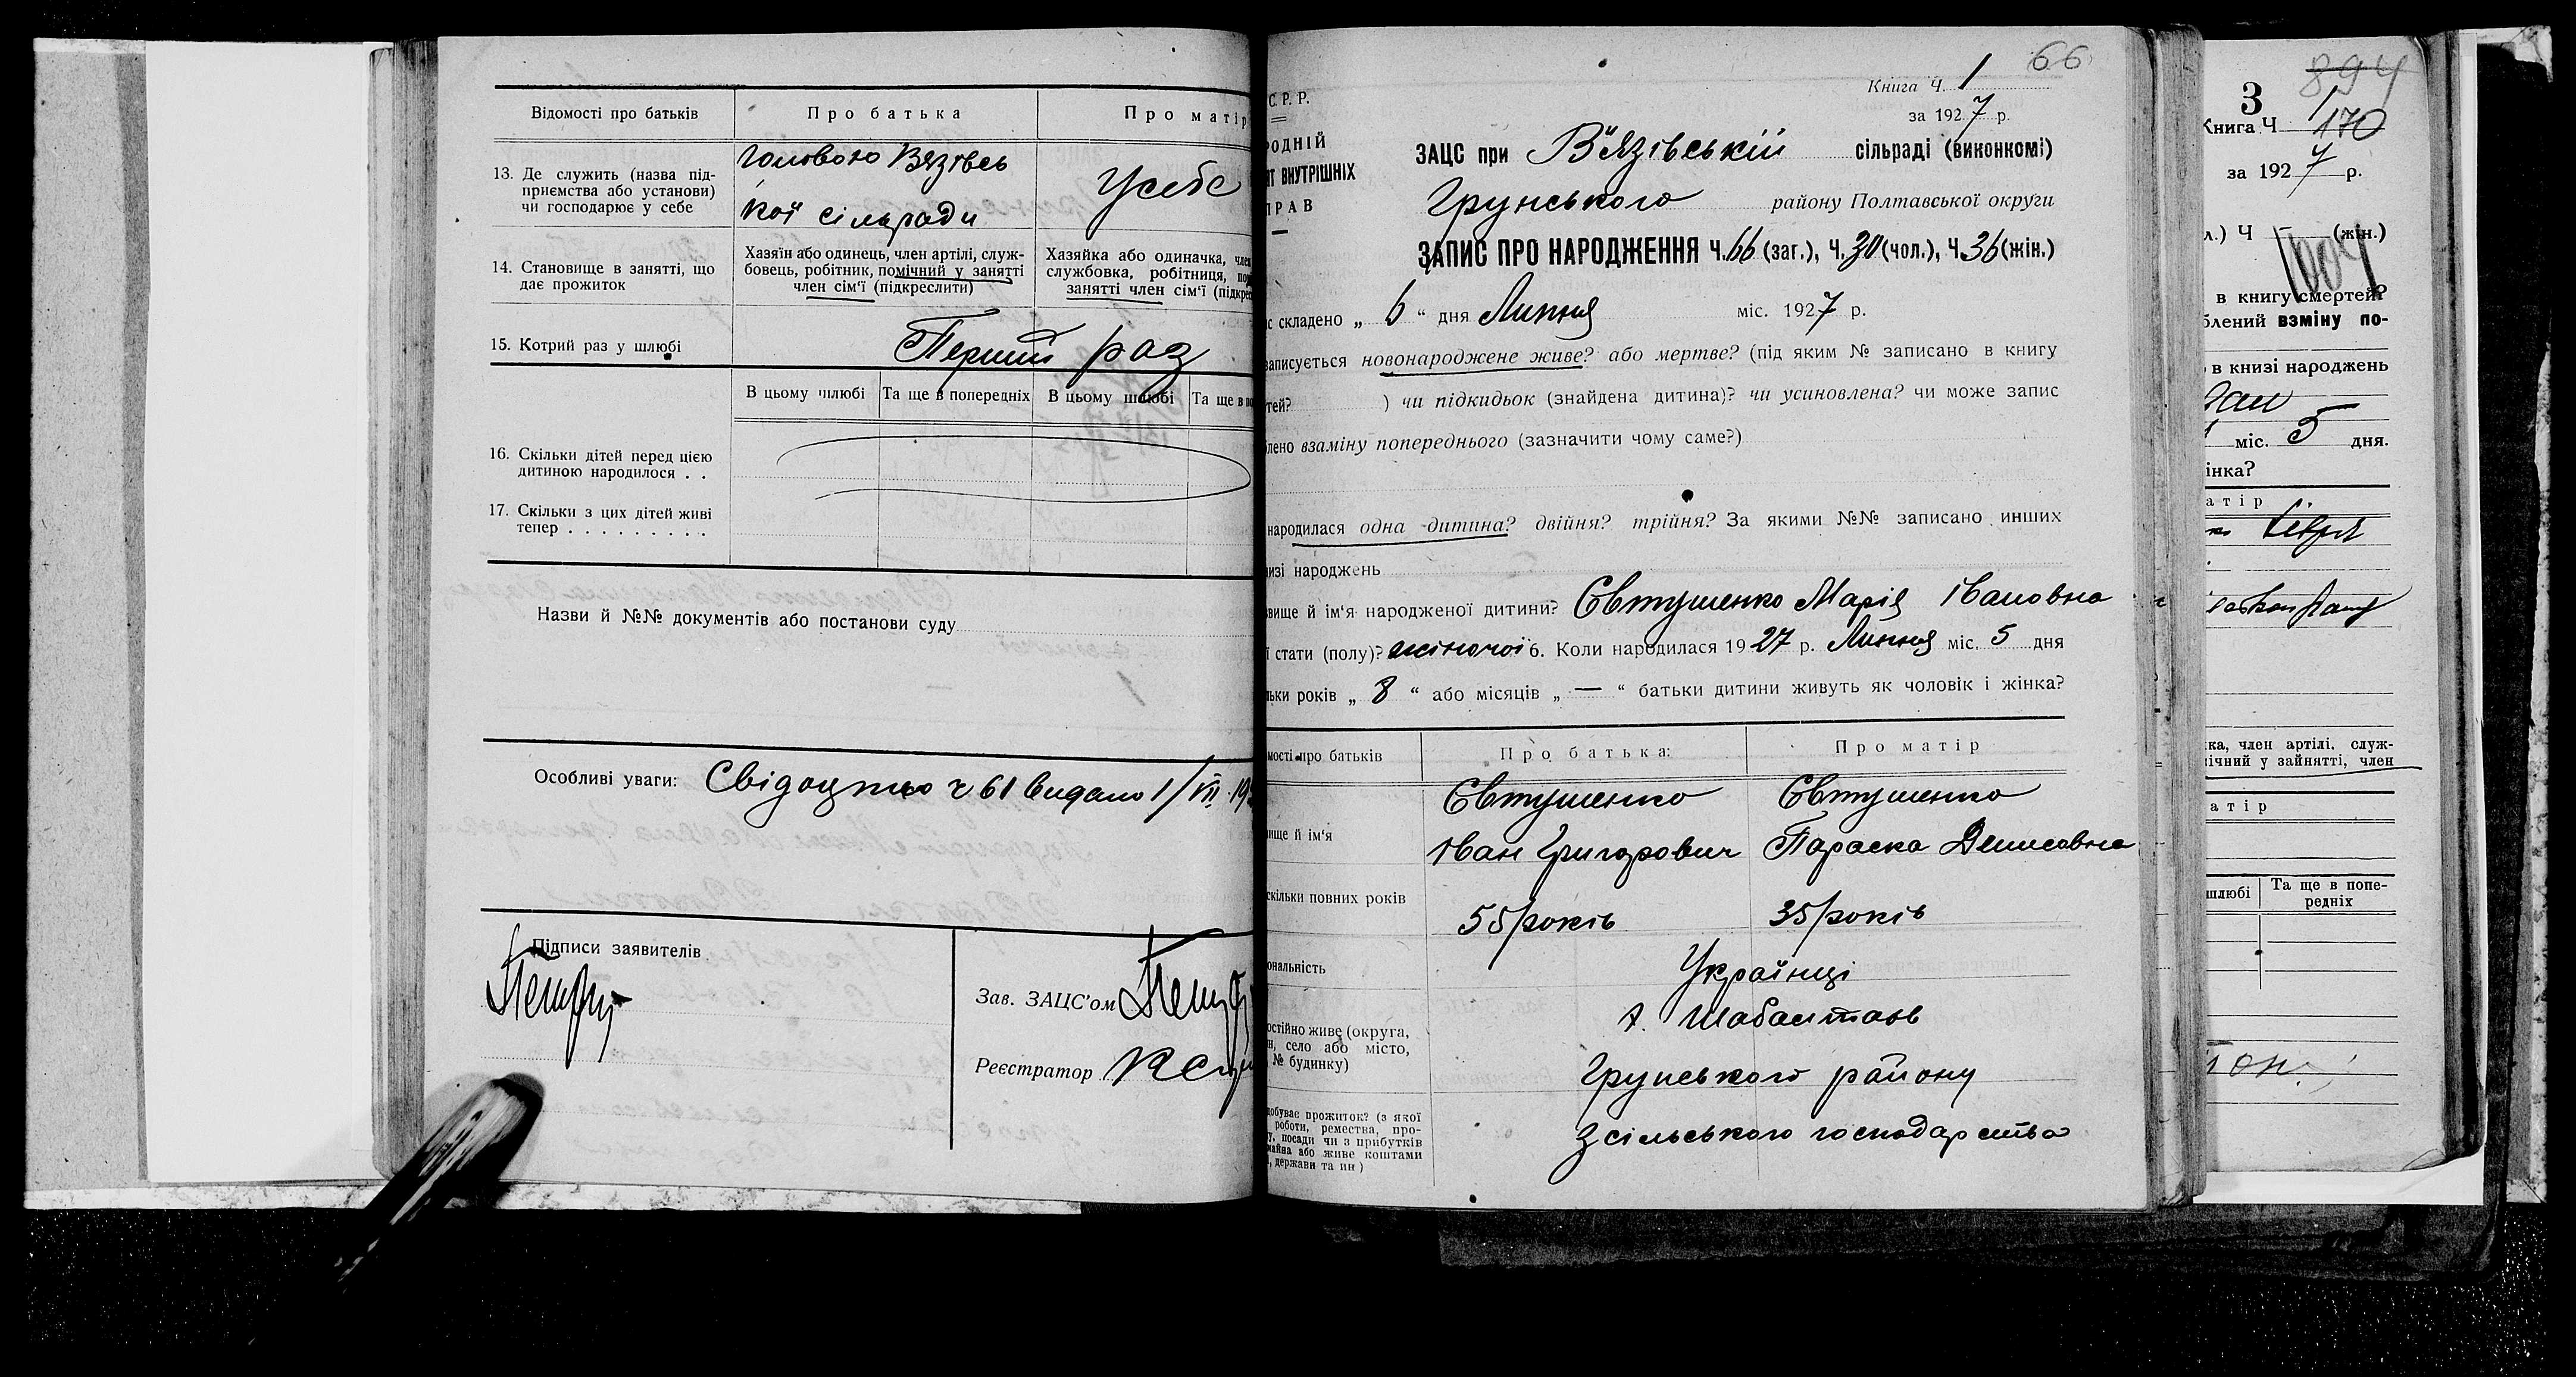 Відомості про батьків
Про батька
Про матір
13. Де служить (назва під-
приємства або установи)
чи господарює у себе
головою Вязівсь
кої сільради
Усебе
14. Становище в занятті, що
дає прожиток
Хазяїн або одинець, член артілі, служ-
бовець, робітник, помічний у занятті
член сім'ї (підкреслити)
Хазяйка або одиначка, член
службовка, робітниця, по
занятті член сім'ї (підкре
15. Котрий раз у шлюбі
Перший раз
В цьому шлюбі
Та ще в попередніх
В цьому шлюбі
Та ще в по
16. Скільки дітей перед цією
дитиною народилося . .
17. Скільки з цих дітей живі
тепер . . . . . . . . .
Назви й №№ документів або постанови суду
Особливі уваги: Свідоцтво ч 61 видано 1/VIII 19
Підписи заявителів
Зав. ЗАЦС'ом
Реєстратор
66
Книга Ч. 1
за 1927 р.
С. Р. Р.
РОДНІЙ
ВНУТРІШНІХ
РАВ
ЗАЦС при В'язівській сільраді (виконкомі)
Грунського району Полтавської округи
ЗАПИС ПРО НАРОДЖЕННЯ Ч. 66 (заг.), Ч. 30 (чол.), Ч. 36 (жін.)
с складено „ 6 " дня Липня міс. 1927 р.
записується новонароджене живе? або мертве? (під яким № записано в книгу
тей? ) чи підкидьок (знайдена дитина)? чи усиновлена? чи може запис
лено взаміну попереднього (зазначити чому саме?)
народилася одна дитина? двійня? трійня? За якими №№ записано инших
изі народжень
вище й ім'я народженої дитини? Євтушенко Марія Івановна
ї стати (полу)? жіночої 6. Коли народилася 1927 р. Липня міс. 5 дня
льки років „ 8 " або місяців „ — " батьки дитини живуть як чоловік і жінка?
мості про батьків
Про батька:
Про матір
вище й ім'я
Євтушенко
Іван Григорович
Євтушенко
Параска Денисовна
скільки повних років
55 років
35 років
ональність
Українці
остійно живе (округа,
н, село або місто,
№ будинку)
х. Шабалтаєв
Грунського району
добуває прожиток? (з якої
роботи, ремества, про-
у, посади чи з прибутків
майна або живе коштами
, держави та ин)
З сільського господарства
3
894
Книга Ч 1
170
за 1927 р.
л.) Ч (жін.)
в книгу смертей?
блений взміну по-
в книзі народжень
міс. 5 дня.
інка?
атір
ка, член артілі, служ-
ічний у зайнятті, член
атір
шлюбі
Та ще в попе-
редніх